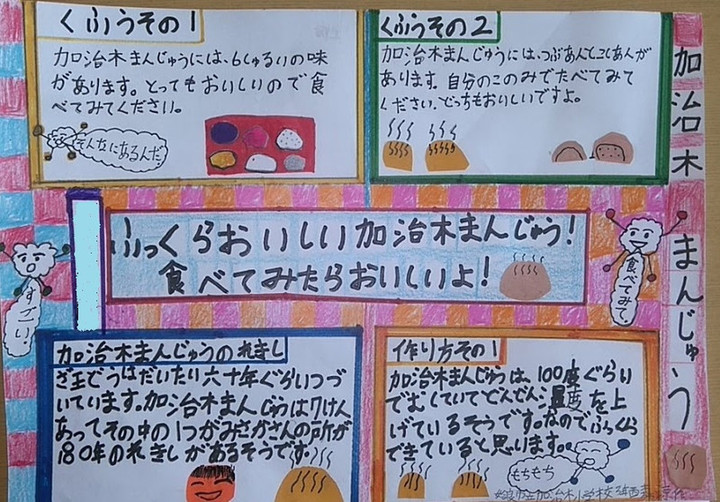 加治木まんじゅう
くふうその1
加治木まんじゅうには、6しゅるいの味
があります。とってもおいしいので食
べてみてください。
そんなにあるんだ
くふうその2
加治木まんじゅうには、つぶあんとこしあんが
あります。自分のこのみでたべてみて
ください、どっちもおいしいですよ。
ふっくらおいしい加治木まんじゅう!
食べてみたらおいしいよ!
すごい
食べてみて。
加治木まんじゅうのれきし
だいたい六十年ぐらいつづ
いています。加治木まんじゅうは7けん
あってその中の1つがみさかさんの所が
180年のれきしがあるそうです。
作り方その1
加治木まんじゅうは、100度ぐらい
でむしていてどんどん温度を上
げているそうです。なのでふっくら
できていると思います。
もちもち